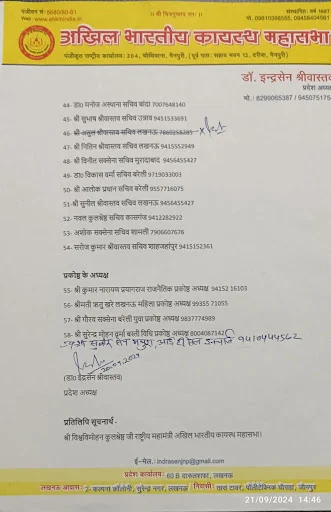 पंजीयन सं: 5680/80-81
Web: www.abkmindia.in
॥ श्री चित्रगुप्ताय नमः ॥
स्थापित: वर्ष 1887
मो. 09810386555, 09456404961
अखिल भारतीय कायस्थ महासभा
पंजीकृत राष्ट्रीय कार्यालय: 364, चौथियाना, मैनपुरी, (पूर्व पता: सहाय भवन 12, दरीबा, मैनपुरी)
डॉ. इन्द्रसेन श्रीवास्तव
प्रदेश अध्यक्ष
मो.: 8299065387 / 945075175
44- डा० मनोज अस्थाना सचिव बांदा 7007648140
45- श्री सुभाष श्रीवास्तव सचिव उन्नाव 9451533691
46- श्री अतुल श्रीवास्तव सचिव लखनऊ 7860258285
47- श्री नितिन श्रीवास्तव सचिव लखनऊ 9415552949
48- श्री विनीत सक्सेना सचिव मुरादाबाद 9456455427
49- डा० विकास वर्मा सचिव बरेली 9719033003
50- श्री आलोक प्रधान सचिव बरेली 9557716075
51- श्री सुनील श्रीवास्तव सचिव लखनऊ 9456455427
52- नवल कुलश्रेष्ठ सचिव कासगंज 9412282922
53- अशोक सक्सेना सचिव शामली 7906607676
54- सरोज कुमार श्रीवास्तव सचिव शाहजहांपुर 9415152361
प्रकोष्ठ के अध्यक्ष
55- श्री कुमार नारायण प्रयागराज राजनैतिक प्रकोष्ठ अध्यक्ष 94152 16103
56- श्रीमती ऋतु खरे लखनऊ महिला प्रकोष्ठ अध्यक्ष 99355 71055
57- श्री गौरव सक्सेना बरेली युवा प्रकोष्ठ अध्यक्ष 9837774989
58- श्री सुरेन्द्र मोहन वर्मा बस्ती विधि प्रकोष्ठ अध्यक्ष 8004087142
मथुरा, आई टी सेल 9410444562
20.09.2024
(डा० इंद्रसेन श्रीवास्तव)
प्रदेश अध्यक्ष
प्रतिलिपि सूचनार्थ -
श्री विश्वविमोहन कुलश्रेष्ठ जी राष्ट्रीय महामंत्री अखिल भारतीय कायस्थ महासभा।
ई-मेल.: indrasenjnp@gmail.com
प्रदेश कार्यालय: 60 B दारुलशफा, लखनऊ
लखनऊ आवास: 2- कल्पना कॉलोनी, सुरेन्द्र नगर, लखनऊ | निवासी: तारा टावर, पॉलीटेक्निक चौराहा, जौनपुर
21/09/2024 14:46